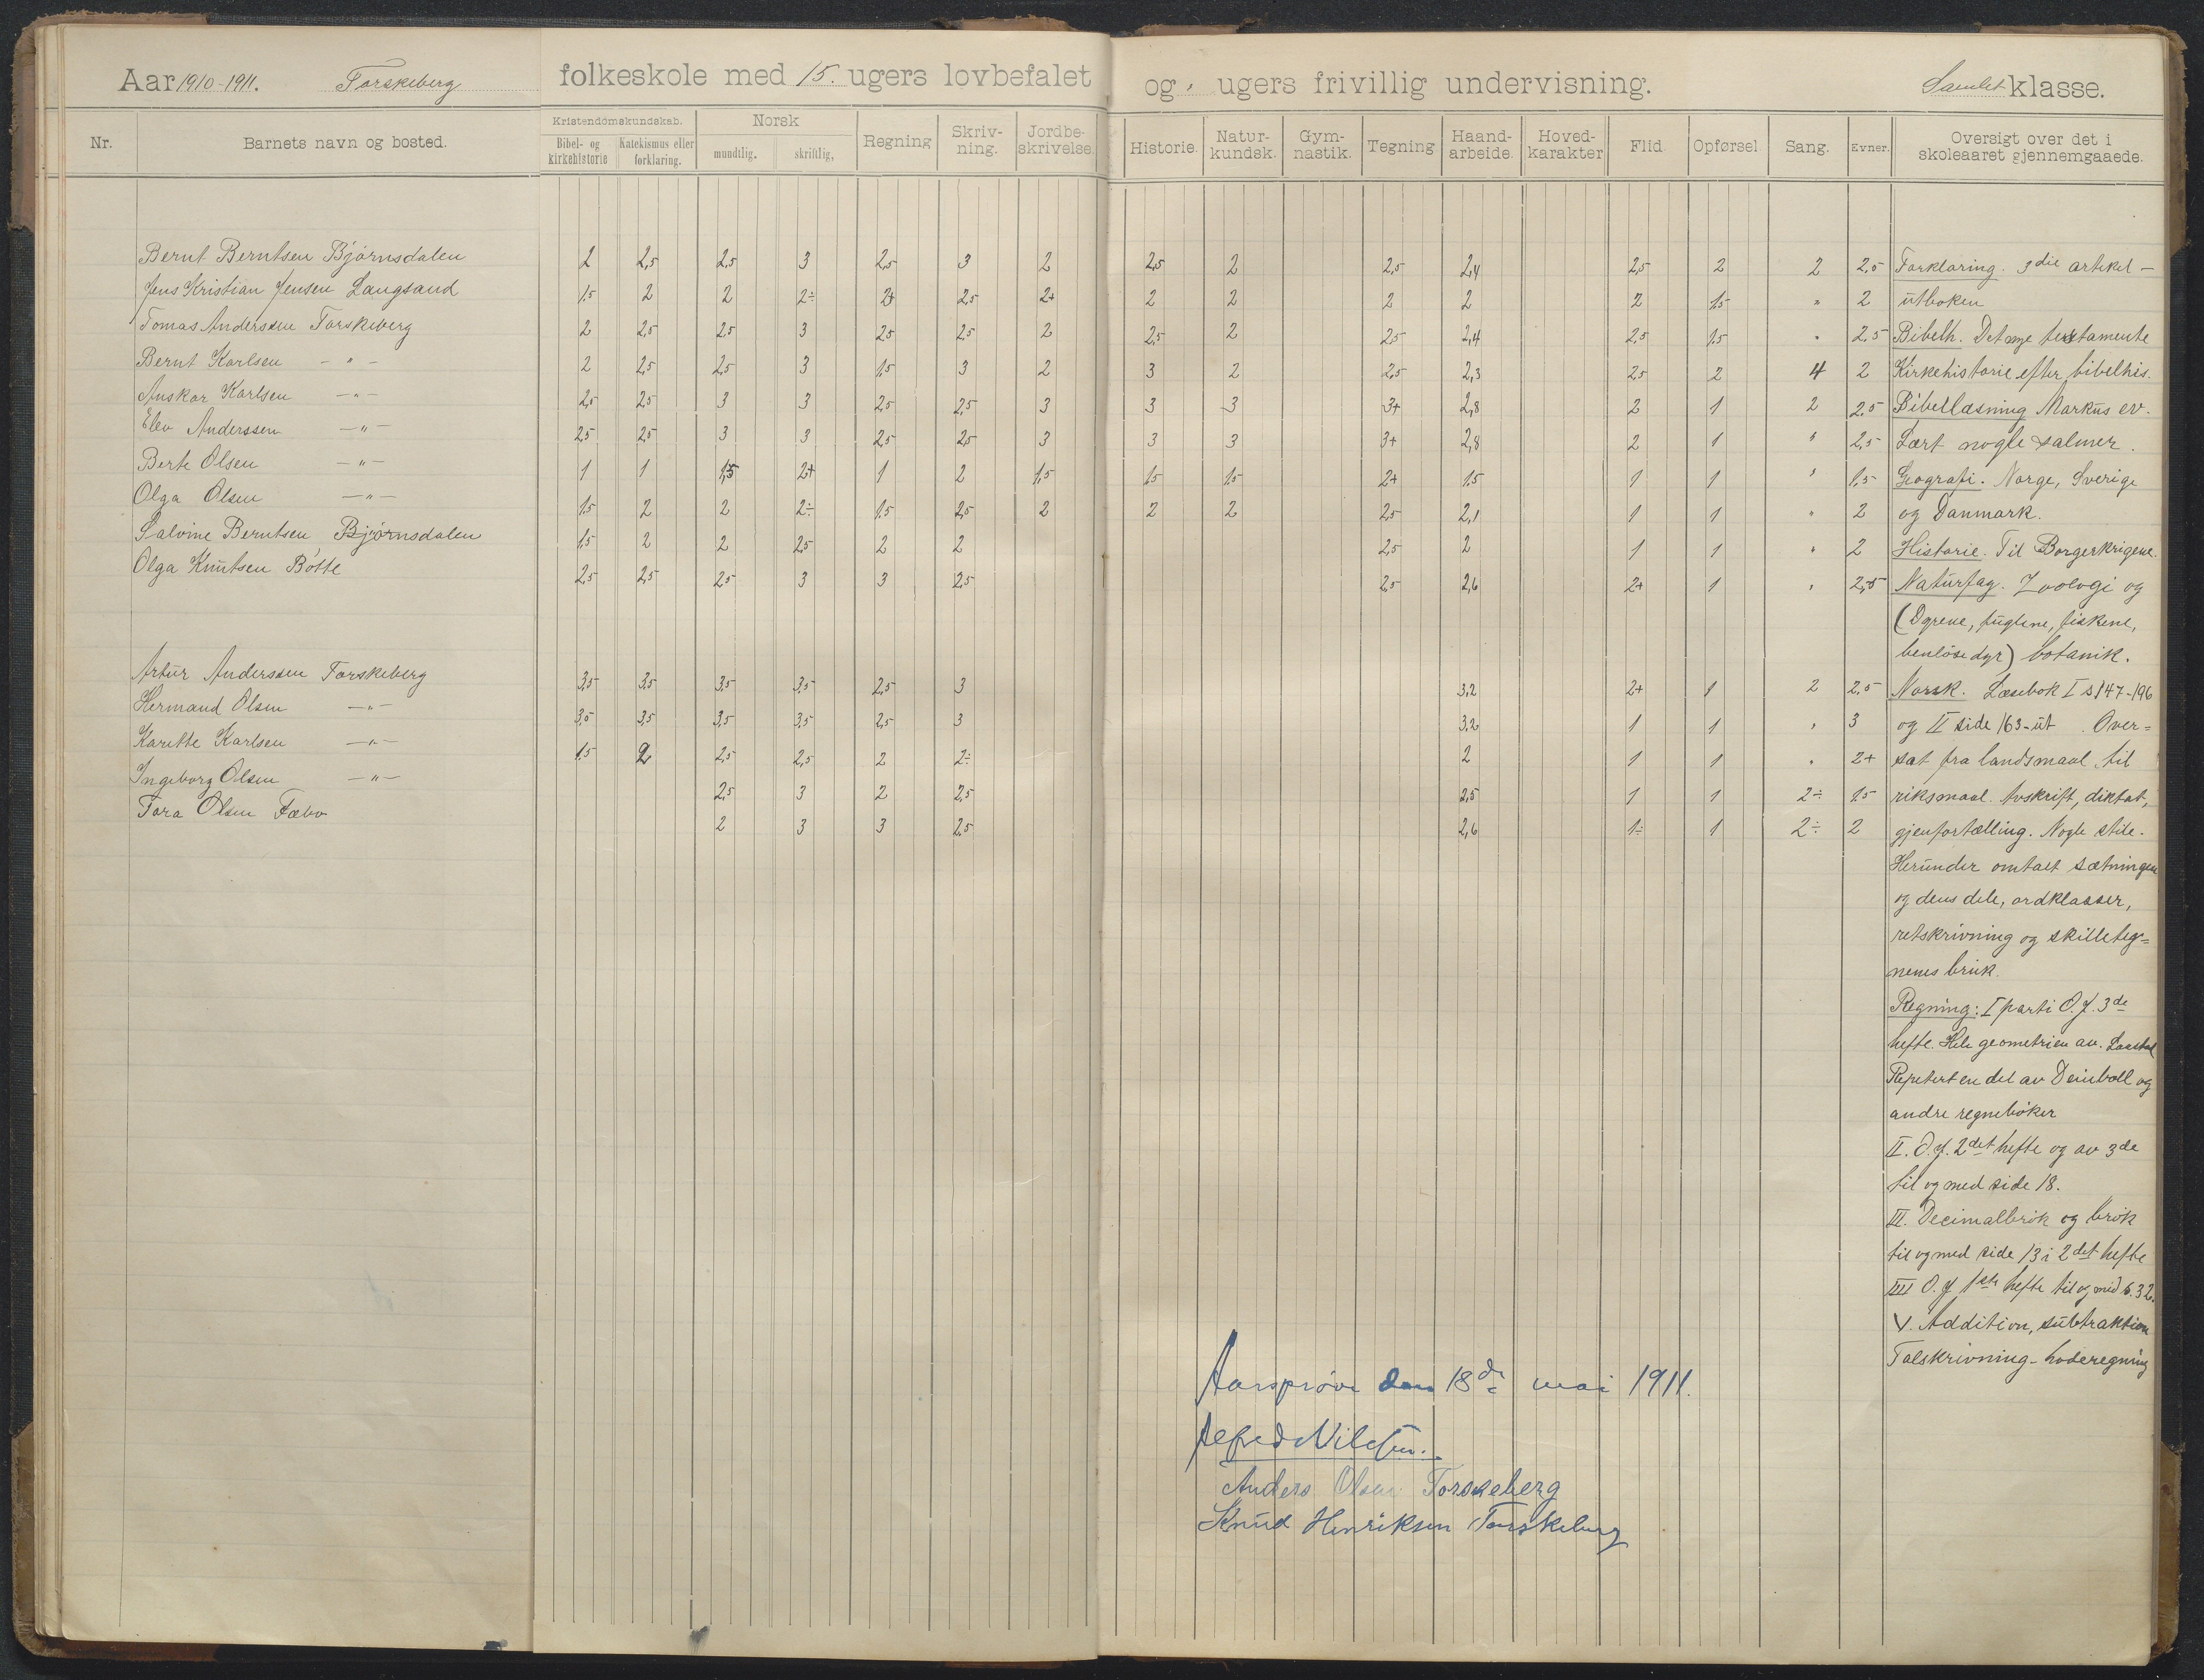 Aar 1910-1911. Torskeberg folkeskole med 15. ugers lovbefalet og " ugers frivillig undervisning. Samlet klasse.
Nr. Barnets navn og bosted. Kristendomskundskab. Bibel- og kirkehistorie Katekismus eller forklaring. Norsk mundtlig. skriftlig, Regning Skriv-ning. Jordbe-skrivelse. Historie. Natur-kundsk. Gym-nastik. Tegning Haand-arbeide. Hoved-karakter Flid. Opførsel Sang. Evner. Oversigt over det i skoleaaret gjennemgaaede.
Bernt Berntsen Bjørnsdalen 2 2,5 2,5 3 2,5 3 2 2,5 2 2,5 2,4 2,5 2 2 2,5
Jens Kristian Jensen Langsand 1,5 2 2 2÷ 2+ 2,5 2+ 2 2 2 2 2 1,5 " 2
Tomas Anderssen Torskeberg 2 2,5 2,5 3 2,5 2,5 2 2,5 2 2,5 2,4 2,5 1,5 " 2,5
Bernt Karlsen - " - 2 2,5 2,5 3 1,5 3 2 3 2 2,5 2,3 2,5 2 4 2
Anskar Karlsen - " - 2,5 2,5 3 3 2,5 2,5 3 3 3 3+ 2,8 2 1 2 2,5
Elev Anderssen - " - 2,5 2,5 3 3 2,5 2,5 3 3 3 3+ 2,8 2 1 " 2,5
Berte Olsen - " - 1 1 1,5 2+ 1 2 1,5 1,5 1,5 2+ 1,5 1 1 " 1,5
Olga Olsen - " - 1,5 2 2 2÷ 1,5 2,5 2 2 2 2,5 2,1 1 1 " 2
Salvine Berntsen Bjørnsdalen 1,5 2 2 2,5 2 2 2,5 2 1 1 " 2
Olga Knutsen Bøtte 2,5 2,5 2,5 3 3 2,5 2,5 2,6 2+ 1 " 2,5
Artur Anderssen Torskeberg 3,5 3,5 3,5 3,5 2,5 3 3,2 2+ 1 2 2,5
Hermand Olsen - " - 3,5 3,5 3,5 3,5 2,5 3 3,2 1 1 " 3
Karette Karlsen - " - 1,5 2 2,5 2,5 2 2÷ 2 1 1 " 2+
Ingeborg Olsen - " - 2,5 3 2 2,5 2,5 1 1 2÷ 1,5
Tora Olsen Fæbo 2 3 3 2,5 2,6 1÷ 1 2÷ 2
Forklaring. 3die artikel -
utboken
Bibelh. Det nye testamente
Kirkehistorie efter bibelhis.
Bibellæsning Markus ev.
Lært nogle salmer.
Geografi. Norge, Sverige
og Danmark.
Historie. Til Borgerkrigene.
Naturfag. Zoologi og
(Dyrene, fuglene, fiskene,
benløse dyr) botanik.
Norsk. Læsebok I s 147-196
og II side 163-ut. Over=
sat fra landsmaal til
riksmaal. Avskrift, diktat,
gjenfortælling. Nogle stile.
Herunder omtalt sætningen
og dens dele, ordklasser,
retskrivning og skilleteg=
nenes bruk.
Regning: I parti O.J. 3de
hefte. Hele geometrien av.
Repetert en del av Deinboll og
andre regnebøker
II. O.J. 2det hefte og av 3de
til og med side 18.
III. Decimalbrøk og brøk
til og med side 13 i 2det hefte
IIII O.J 1ste hefte til og med s. 32.
V. Addition, subtraktion
Talskrivning - hoderegning
Aarsprøve den 18de mai 1911.
Alfred Nilsen.
Anders Olsen Torskeberg
Knud Henriksen Torskeberg